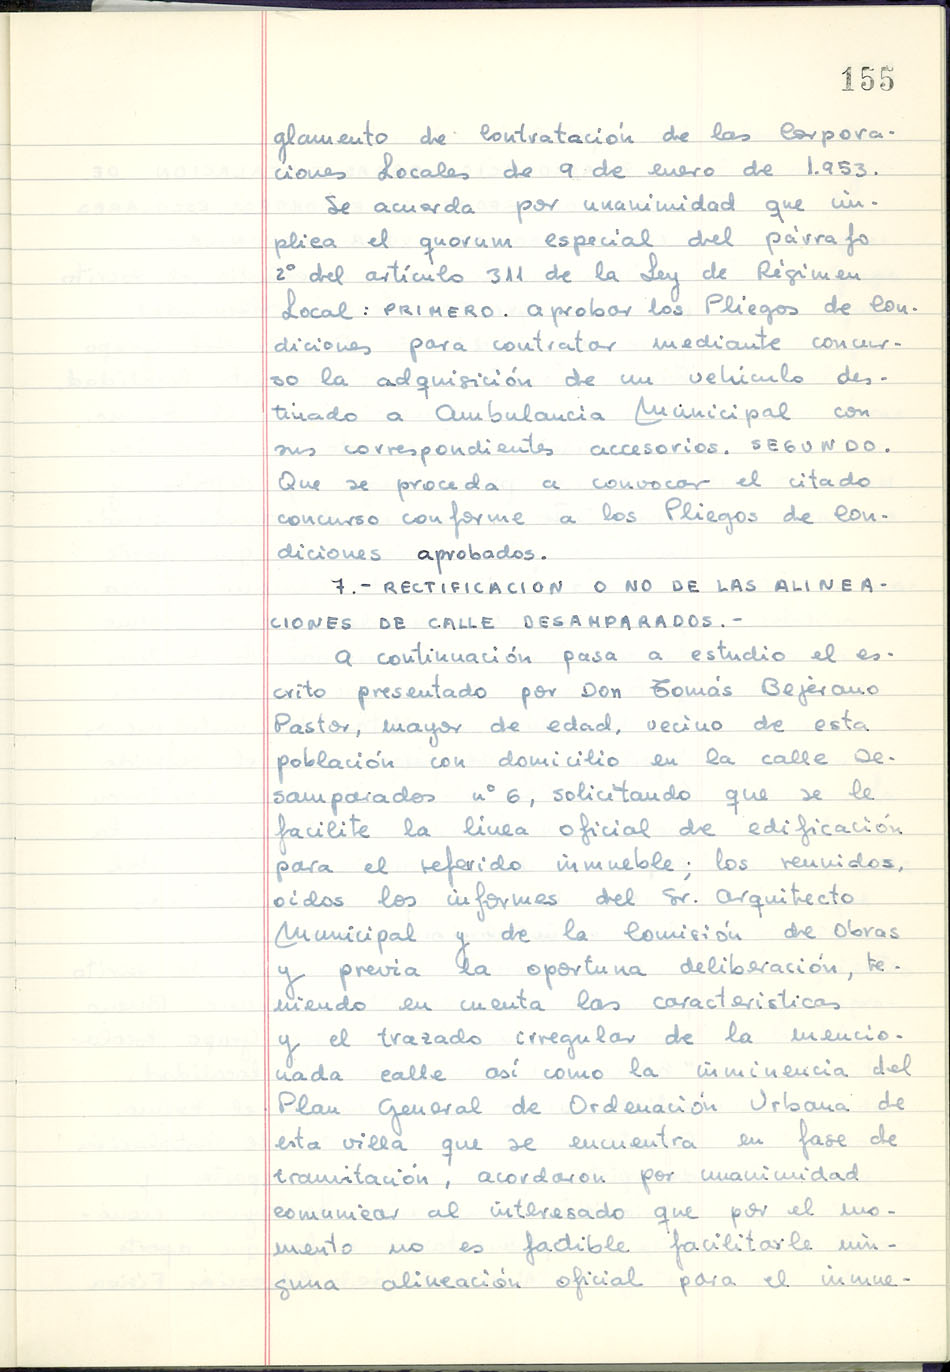 155
glamento de Contratación de las Corpora-
ciones Locales de 9 de enero de 1.953.
Se acuerda por unanimidad que im-
plica el quorum especial del párrafo
2º del artículo 311 de la Ley de Régimen
Local: PRIMERO. Aprobar los Pliegos de Con-
diciones para contratar mediante concur-
so la adquisición de un vehículo des-
tinado a Ambulancia Municipal con
sus correspondientes accesorios. SEGUNDO.
Que se proceda a convocar el citado
concurso conforme a los Pliegos de Con-
diciones aprobados.
7.- RECTIFICACION O NO DE LAS ALINEA-
CIONES DE CALLE DESAMPARADOS.-
A continuación pasa a estudio el es-
crito presentado por Don Tomás Bejerano
Pastor, mayor de edad, vecino de esta
población con domicilio en la calle De-
samparados nº 6, solicitando que se le
facilite la línea oficial de edificación
para el referido inmueble; los reunidos,
oídos los informes del Sr. Arquitecto
Municipal y de la Comisión de Obras
y previa la oportuna deliberación, te-
niendo en cuenta las características
y el trazado irregular de la mencio-
nada calle así como la inminencia del
Plan General de Ordenación Urbana de
esta villa que se encuentra en fase de
tramitación, acordaron por unanimidad
comunicar al interesado que por el mo-
mento no es fadible facilitarle nin-
guna alineación oficial para el inmue-